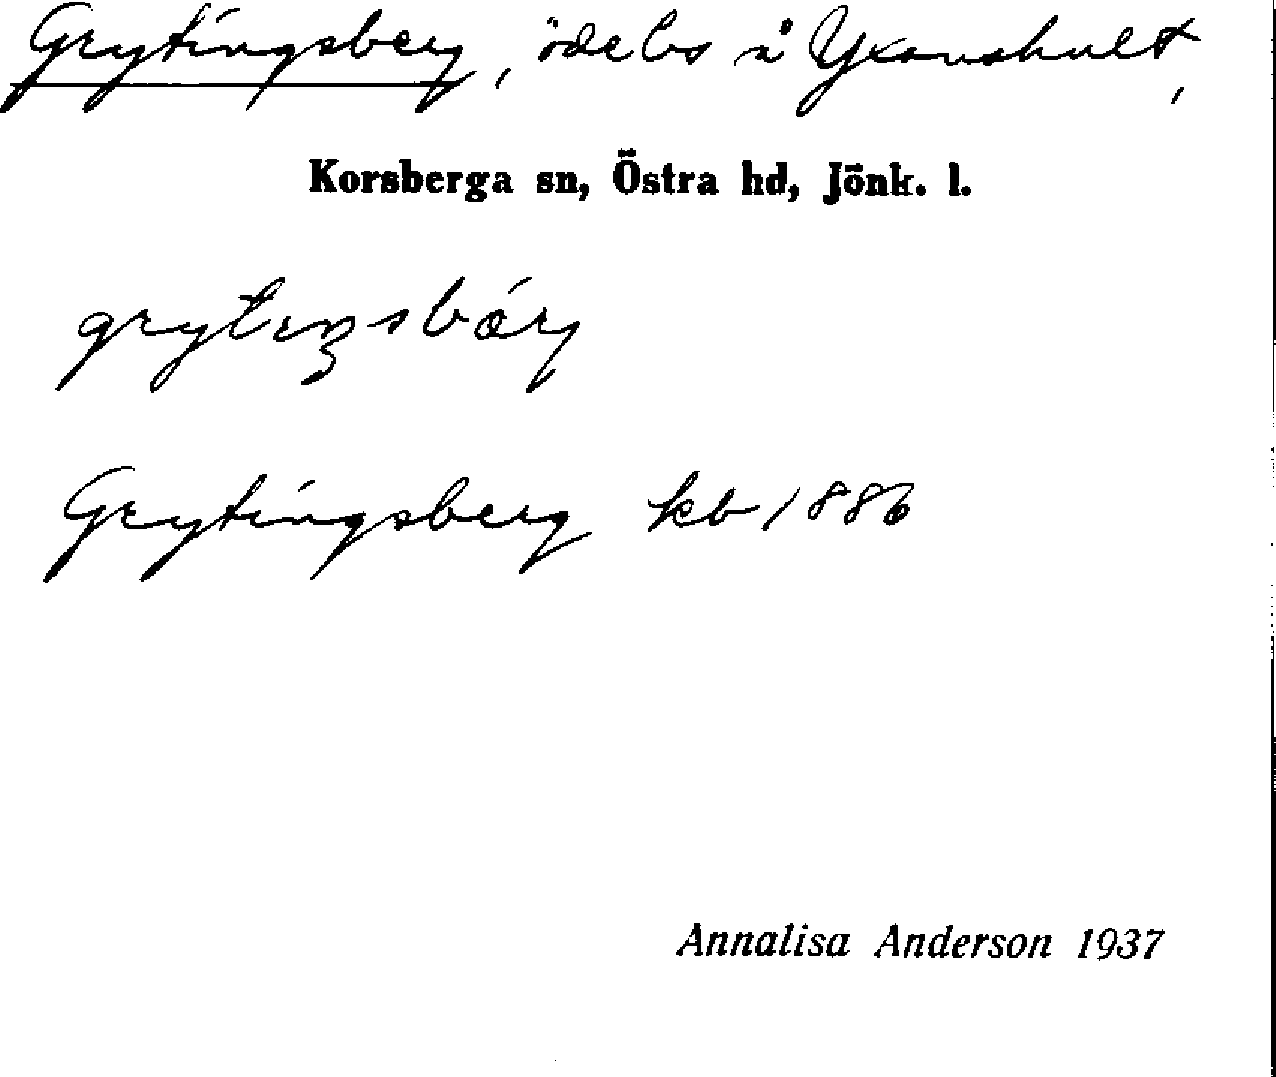 Grytingsberg, ödebs å Yxanshult,
Korsberga sn, Östra hd, Jönk. l.
grytıŋsbærj
Grytingsberg kb 1886
Annalisa Anderson 1937